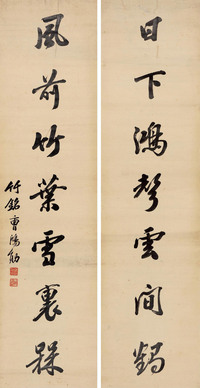 日下鴻聲雲間鶴
風前竹葉雪裏槑
竹銘曹鴻勛